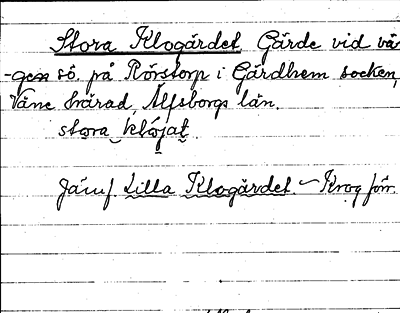 Stora Klogärdet Gärde vid vä-
-gen sö. på Rörstorp i Gärdhem socken,
Väne härad, Älfsborgs län.
stora klojat
Jämf. Lilla Klogärdet. – Krog förr.